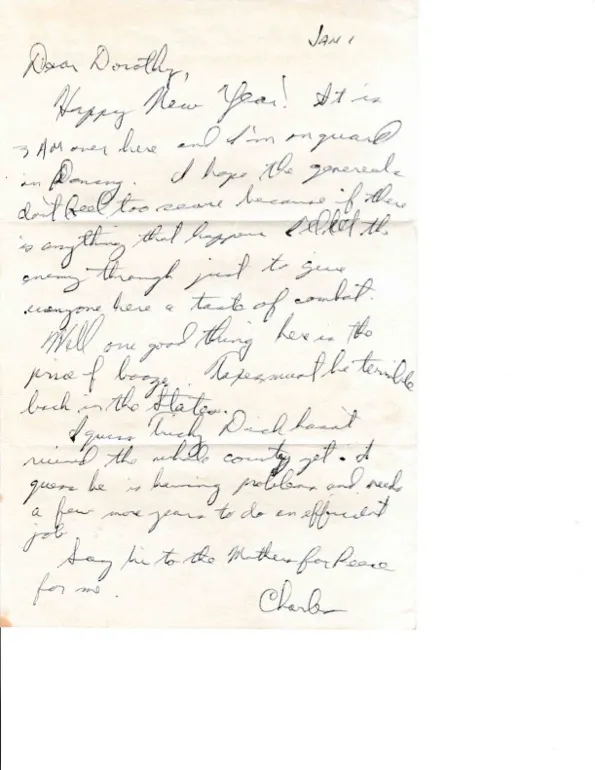 JAN 1
Dear Dorothy,
Happy New Year! It is
3 AM over here and I'm on guard
in Danang. I hope the generals
don't feel too secure because if there
is anything that happens I'll let the
enemy through just to give
everyone here a taste of combat.
Well one good thing here is the
price of booze. Taxes must be terrible
back in the States.
I guess Tricky Dick hasn't
ruined the whole county yet. I
guess he is having problems and needs
a few more years to do an efficient
job
Say hi to the Mothers for Peace
for me.
Charles